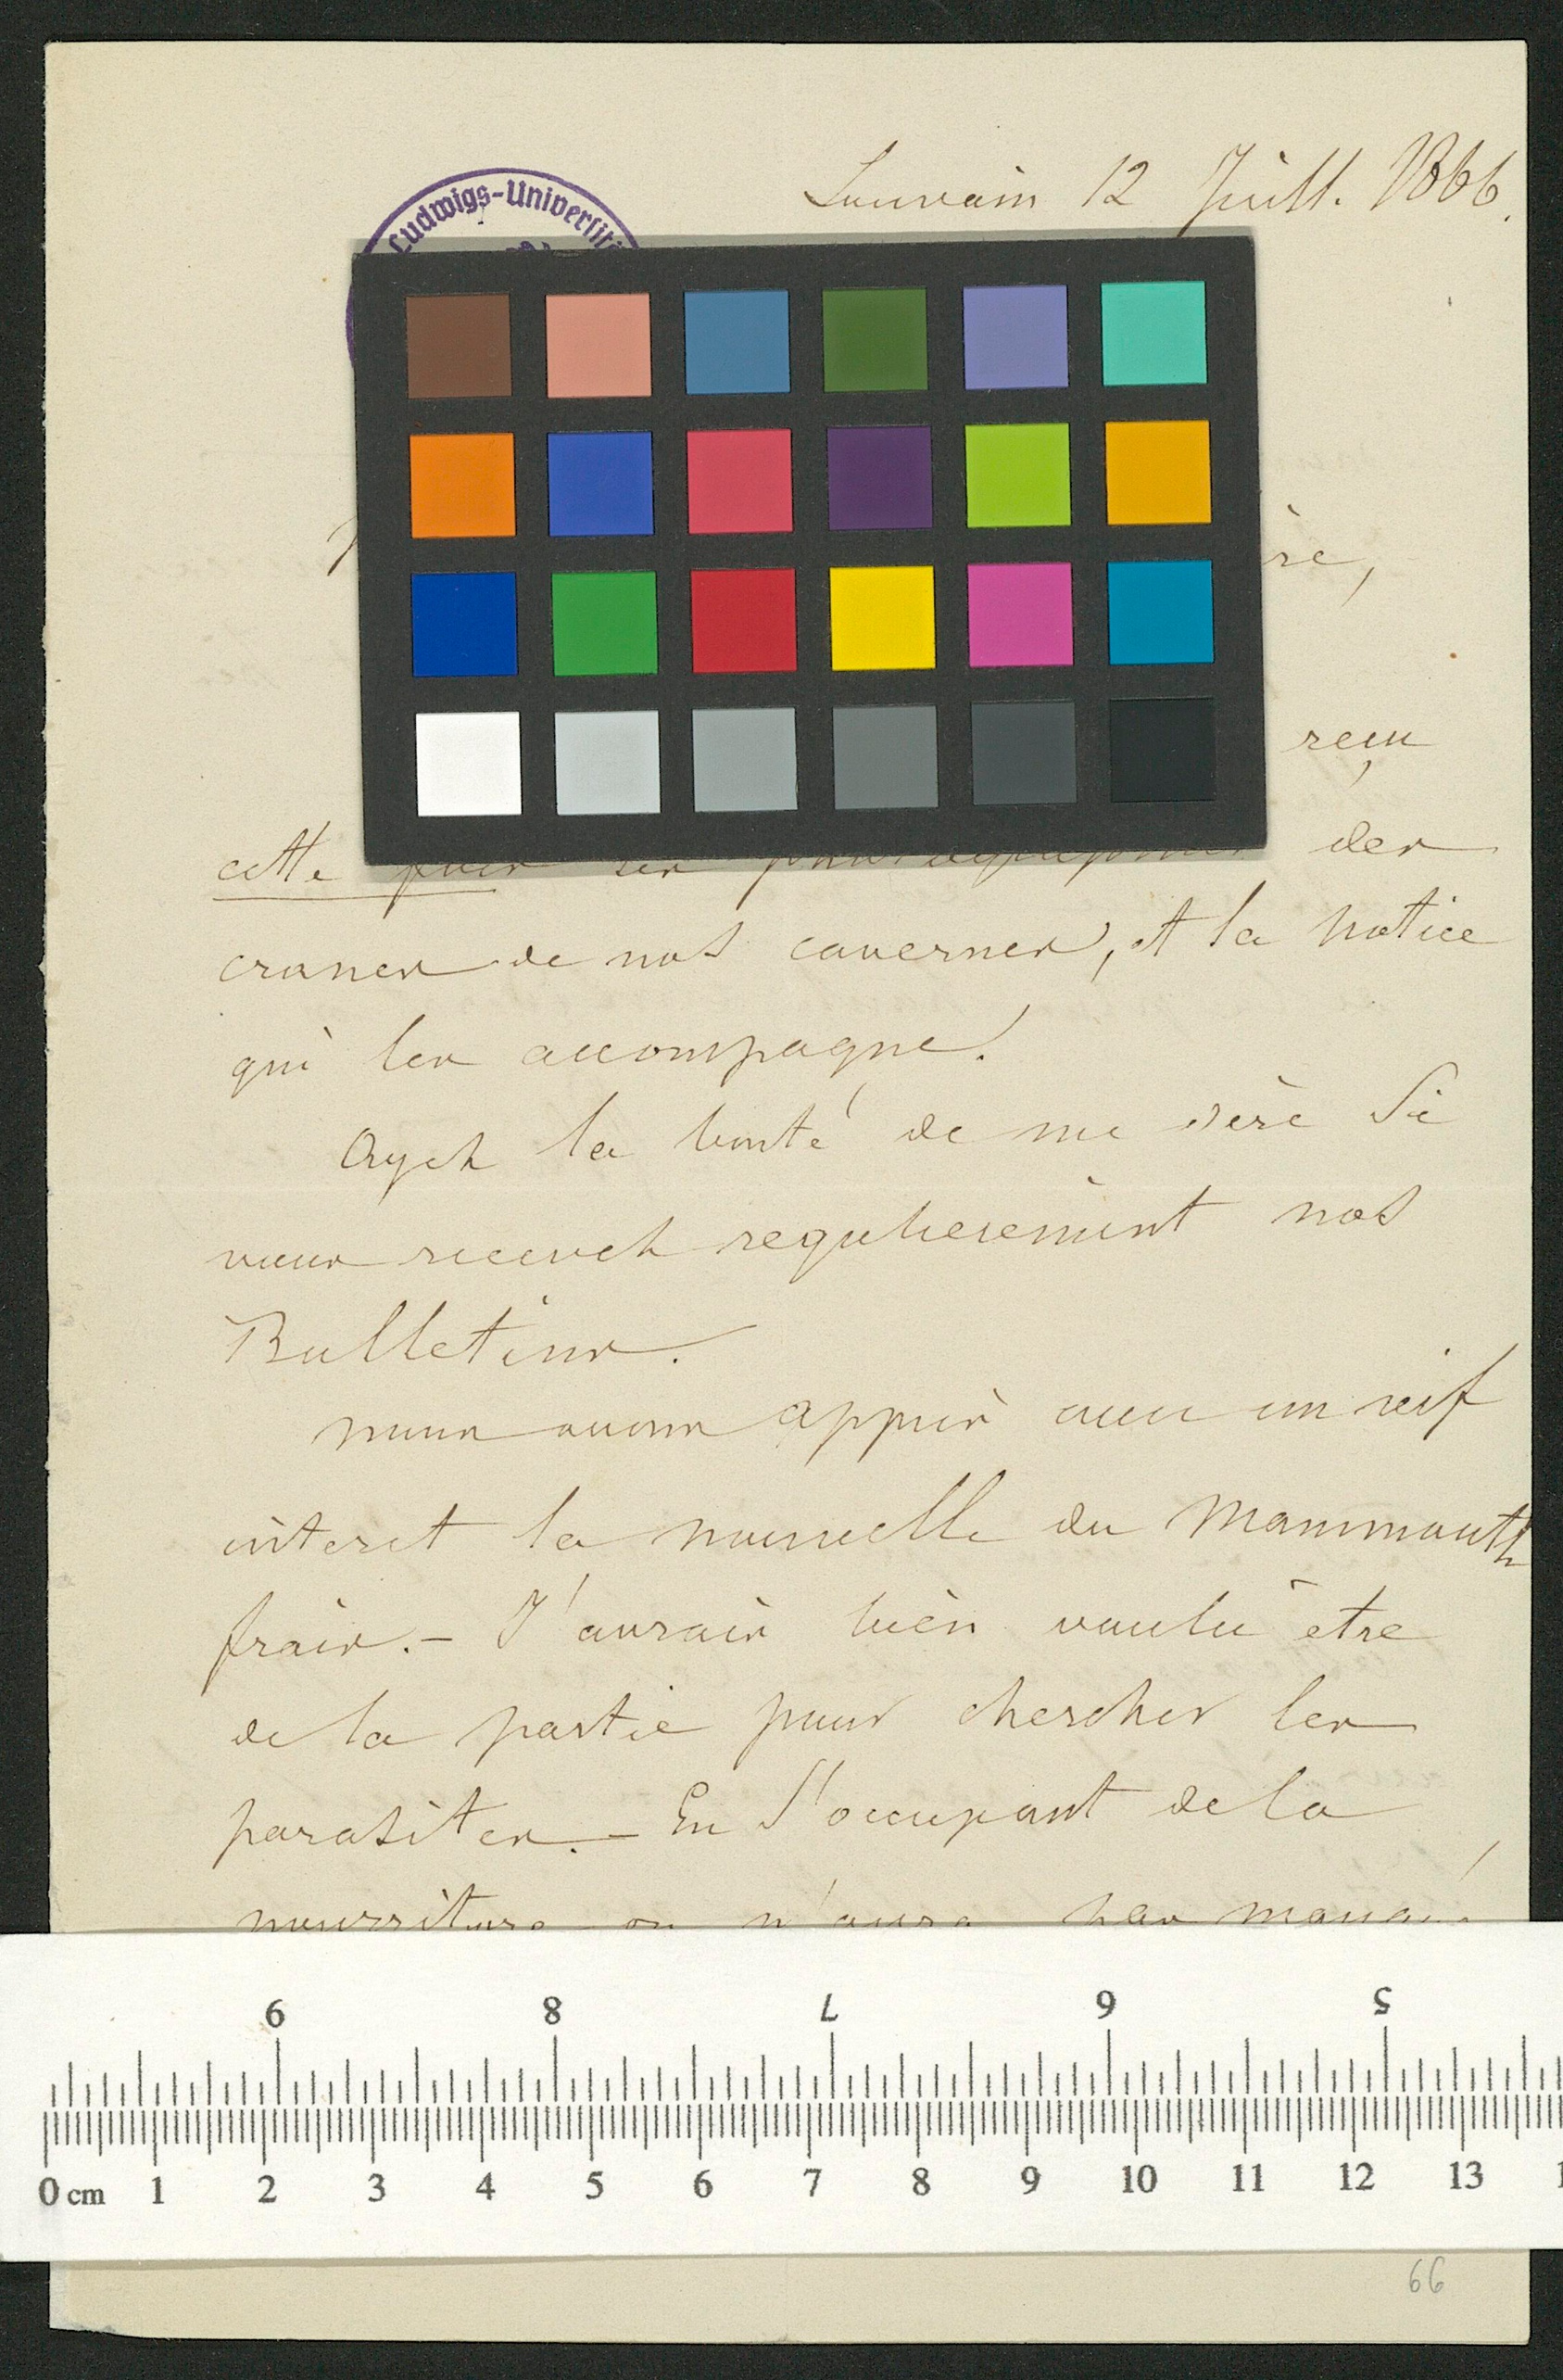 Louvain 12 Juill. 1866.
Ludwigs-Universität
re,
reçu
cette fois les photographies des
cranes de nos cavernes, et la notice
qui les accompagne.
Ayez la bonté de me dire si
vous recevez regulierement nos
Bulletins.
nous avons appris avec un vif
interet la nouvelle du Mammouth
frais. – J'aurais bien voulu etre
de la partie pour chercher les
parasites. – En s'occupant de la
nourriture on n'aura pas
9 8 7 6 5
0 cm 1 2 3 4 5 6 7 8 9 10 11 12 13
66